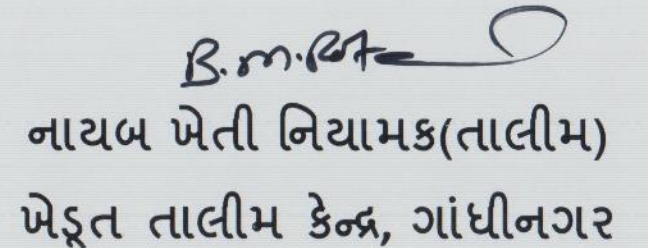 નાયબ ખેતી નિયામક(તાલીમ)
ખેડૂત તાલીમ કેન્દ્ર, ગાંધીનગર